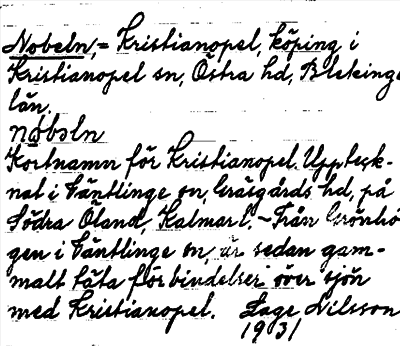 Nobeln, = Kristianopel, köping i
Kristianopel sn, Östra hd, Blekinge
län.
nobəln
Kortnamn för Kristianopel. Uppteck-
nat i Väntlinge sn, Gräsgårds hd, på
Södra Öland, Kalmar l. – Från Grönhö-
gen i Väntlinge sn, är sedan gam-
malt täta förbindelser över sjön
med Kristianopel. Lage Nilsson
1931